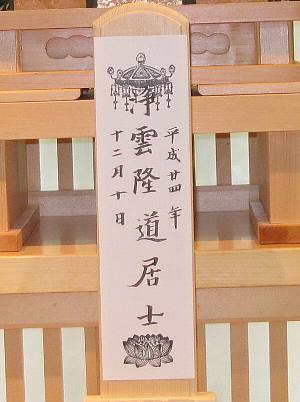 平成廿四年
浄雲隆道居士
十二月十日